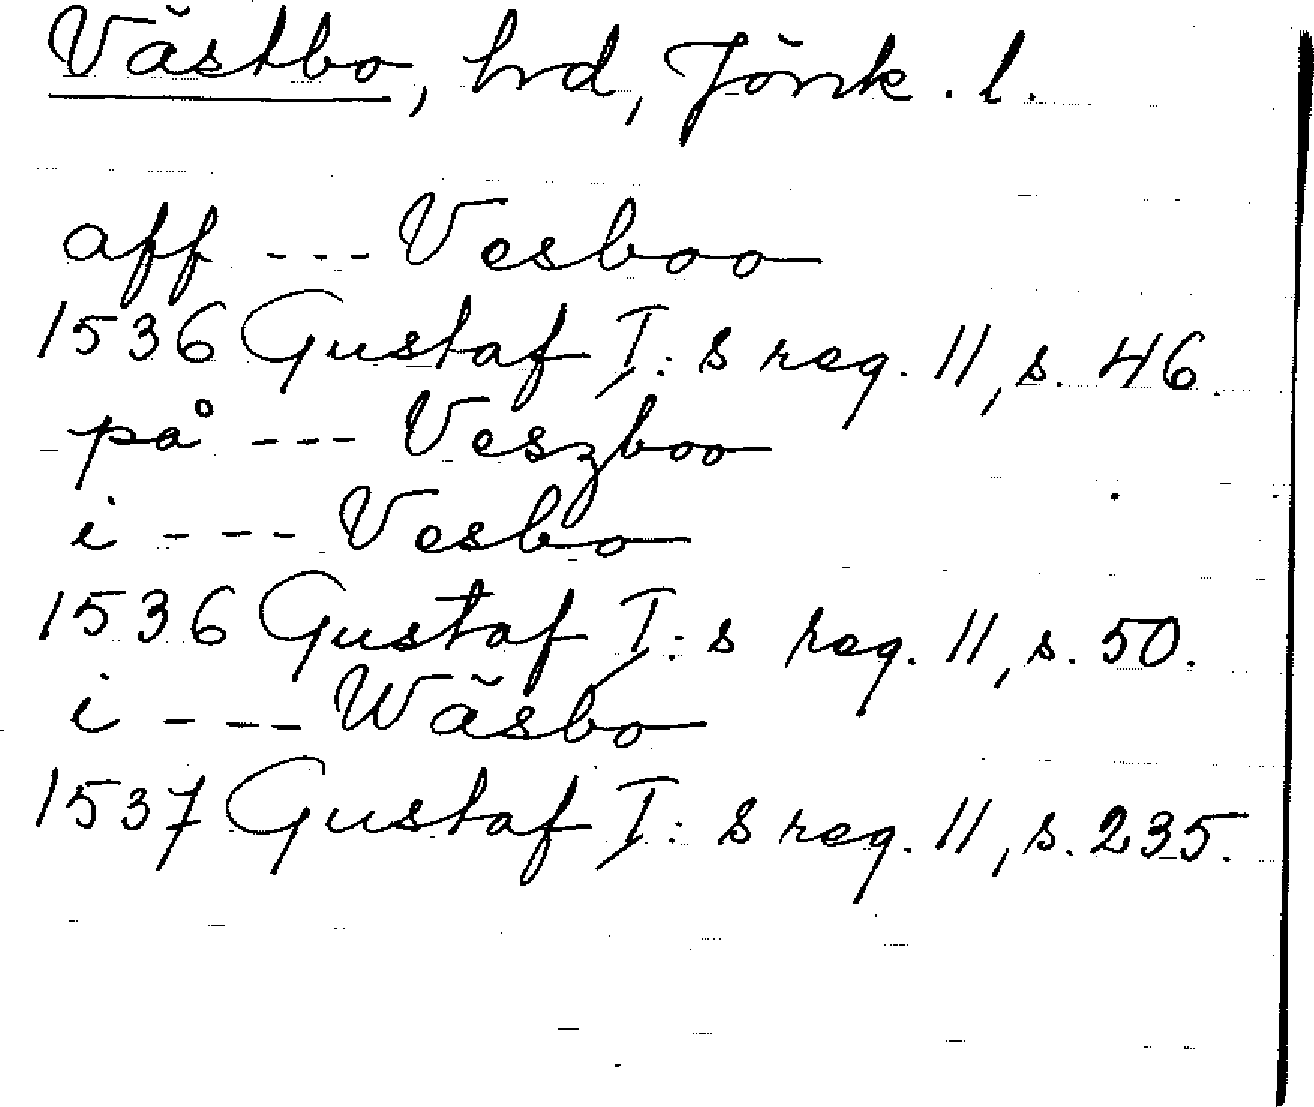 Västbo, hrd, Jönk. l.
aff --- Vesboo
1536 Gustaf I:s reg. 11, s. 46
på --- Veszboo
i --- Vesbo
1536 Gustaf I:s reg. 11, s. 50.
i --- Wäsbo
1537 Gustaf I:s reg. 11, s. 235.